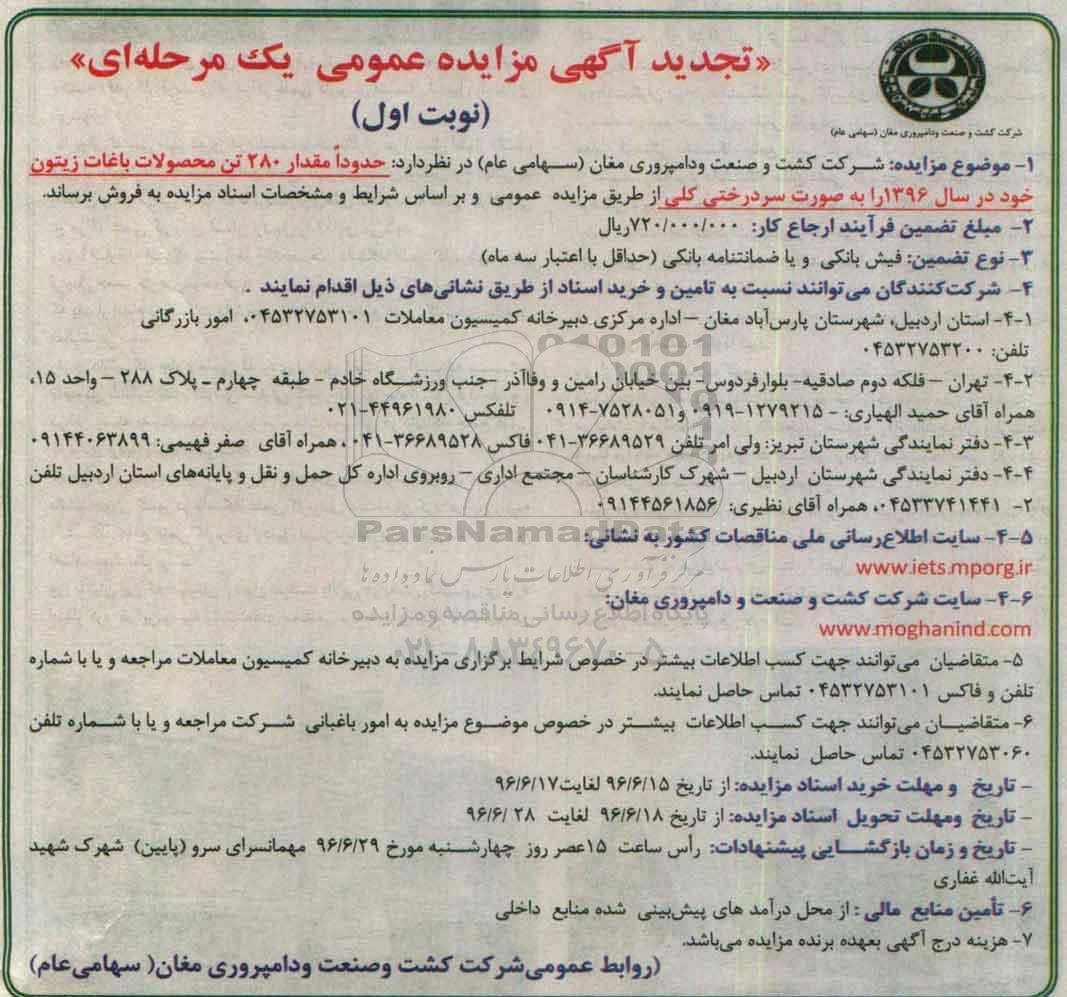 «تجدید آگهی مزایده عمومی یک مرحله‌ای»
(نوبت اول)
شرکت کشت و صنعت ودامپروری مغان (سهامی عام)
۱- موضوع مزایده: شرکت کشت و صنعت ودامپروری مغان (سهامی عام) در نظردارد: حدوداً مقدار ۲۸۰ تن محصولات باغات زیتون
خود در سال ۱۳۹۶را به صورت سردرختی کلی از طریق مزایده عمومی و بر اساس شرایط و مشخصات اسناد مزایده به فروش برساند.
۲- مبلغ تضمین فرآیند ارجاع کار: ۷۲۰/۰۰۰/۰۰۰ریال
۳- نوع تضمین: فیش بانکی و یا ضمانتنامه بانکی (حداقل با اعتبار سه ماه)
۴- شرکت‌کنندگان می‌توانند نسبت به تامین و خرید اسناد از طریق نشانی‌های ذیل اقدام نمایند .
۴-۱- استان اردبیل، شهرستان پارس‌آباد مغان – اداره مرکزی دبیرخانه کمیسیون معاملات ۰۴۵۳۲۷۵۳۱۰۱، امور بازرگانی
تلفن: ۰۴۵۳۲۷۵۳۲۰۰
۴-۲- تهران – فلکه دوم صادقیه- بلوارفردوس- بین خیابان رامین و وفاآذر -جنب ورزشگاه خادم - طبقه چهارم ـ پلاک ۲۸۸ – واحد ۱۵،
همراه آقای حمید الهیاری: - ۱۲۷۹۲۱۵-۰۹۱۹ و۷۵۲۸۰۵۱-۰۹۱۴ تلفکس ۴۴۹۶۱۹۸۰-۰۲۱
۴-۳- دفتر نمایندگی شهرستان تبریز: ولی امر تلفن ۳۶۶۸۹۵۲۹-۰۴۱ فاکس ۳۶۶۸۹۵۲۸-۰۴۱ ، همراه آقای صفر فهیمی: ۰۹۱۴۴۰۶۳۸۹۹
۴-۴- دفتر نمایندگی شهرستان اردبیل – شهرک کارشناسان – مجتمع اداری – روبروی اداره کل حمل و نقل و پایانه‌های استان اردبیل تلفن
۲- ۰۴۵۳۳۷۴۱۴۴۱، همراه آقای نظیری: ۰۹۱۴۴۵۶۱۸۵۶
۴-۵- سایت اطلاع‌رسانی ملی مناقصات کشور به نشانی:
www.iets.mporg.ir
۴-۶- سایت شرکت کشت و صنعت و دامپروری مغان:
www.moghanind.com
۵- متقاضیان می‌توانند جهت کسب اطلاعات بیشتر در خصوص شرایط برگزاری مزایده به دبیرخانه کمیسیون معاملات مراجعه و یا با شماره
تلفن و فاکس ۰۴۵۳۲۷۵۳۱۰۱ تماس حاصل نمایند.
۶- متقاضیان می‌توانند جهت کسب اطلاعات بیشتر در خصوص موضوع مزایده به امور باغبانی شرکت مراجعه و یا با شماره تلفن
۰۴۵۳۲۷۵۳۰۶۰ تماس حاصل نمایند.
- تاریخ و مهلت خرید اسناد مزایده: از تاریخ ۹۶/۶/۱۵ لغایت۹۶/۶/۱۷
- تاریخ ومهلت تحویل اسناد مزایده: از تاریخ ۹۶/۶/۱۸ لغایت ۹۶/۶/۲۸
- تاریخ و زمان بازگشایی پیشنهادات: رأس ساعت ۱۵عصر روز چهارشنبه مورخ ۹۶/۶/۲۹ مهمانسرای سرو (پایین) شهرک شهید
آیت‌الله غفاری
۶- تأمین منابع مالی : از محل درآمد های پیش‌بینی شده منابع داخلی
۷- هزینه درج آگهی بعهده برنده مزایده می‌باشد.
(روابط عمومی‌شرکت کشت وصنعت ودامپروری مغان( سهامی‌عام)
ParsNamadData
مرکز فرآوری اطلاعات پارس نماد داده ها
پایگاه اطلاع رسانی مناقصه و مزایده
۰۲۱-۸۸۳۴۹۶۷۰-۵